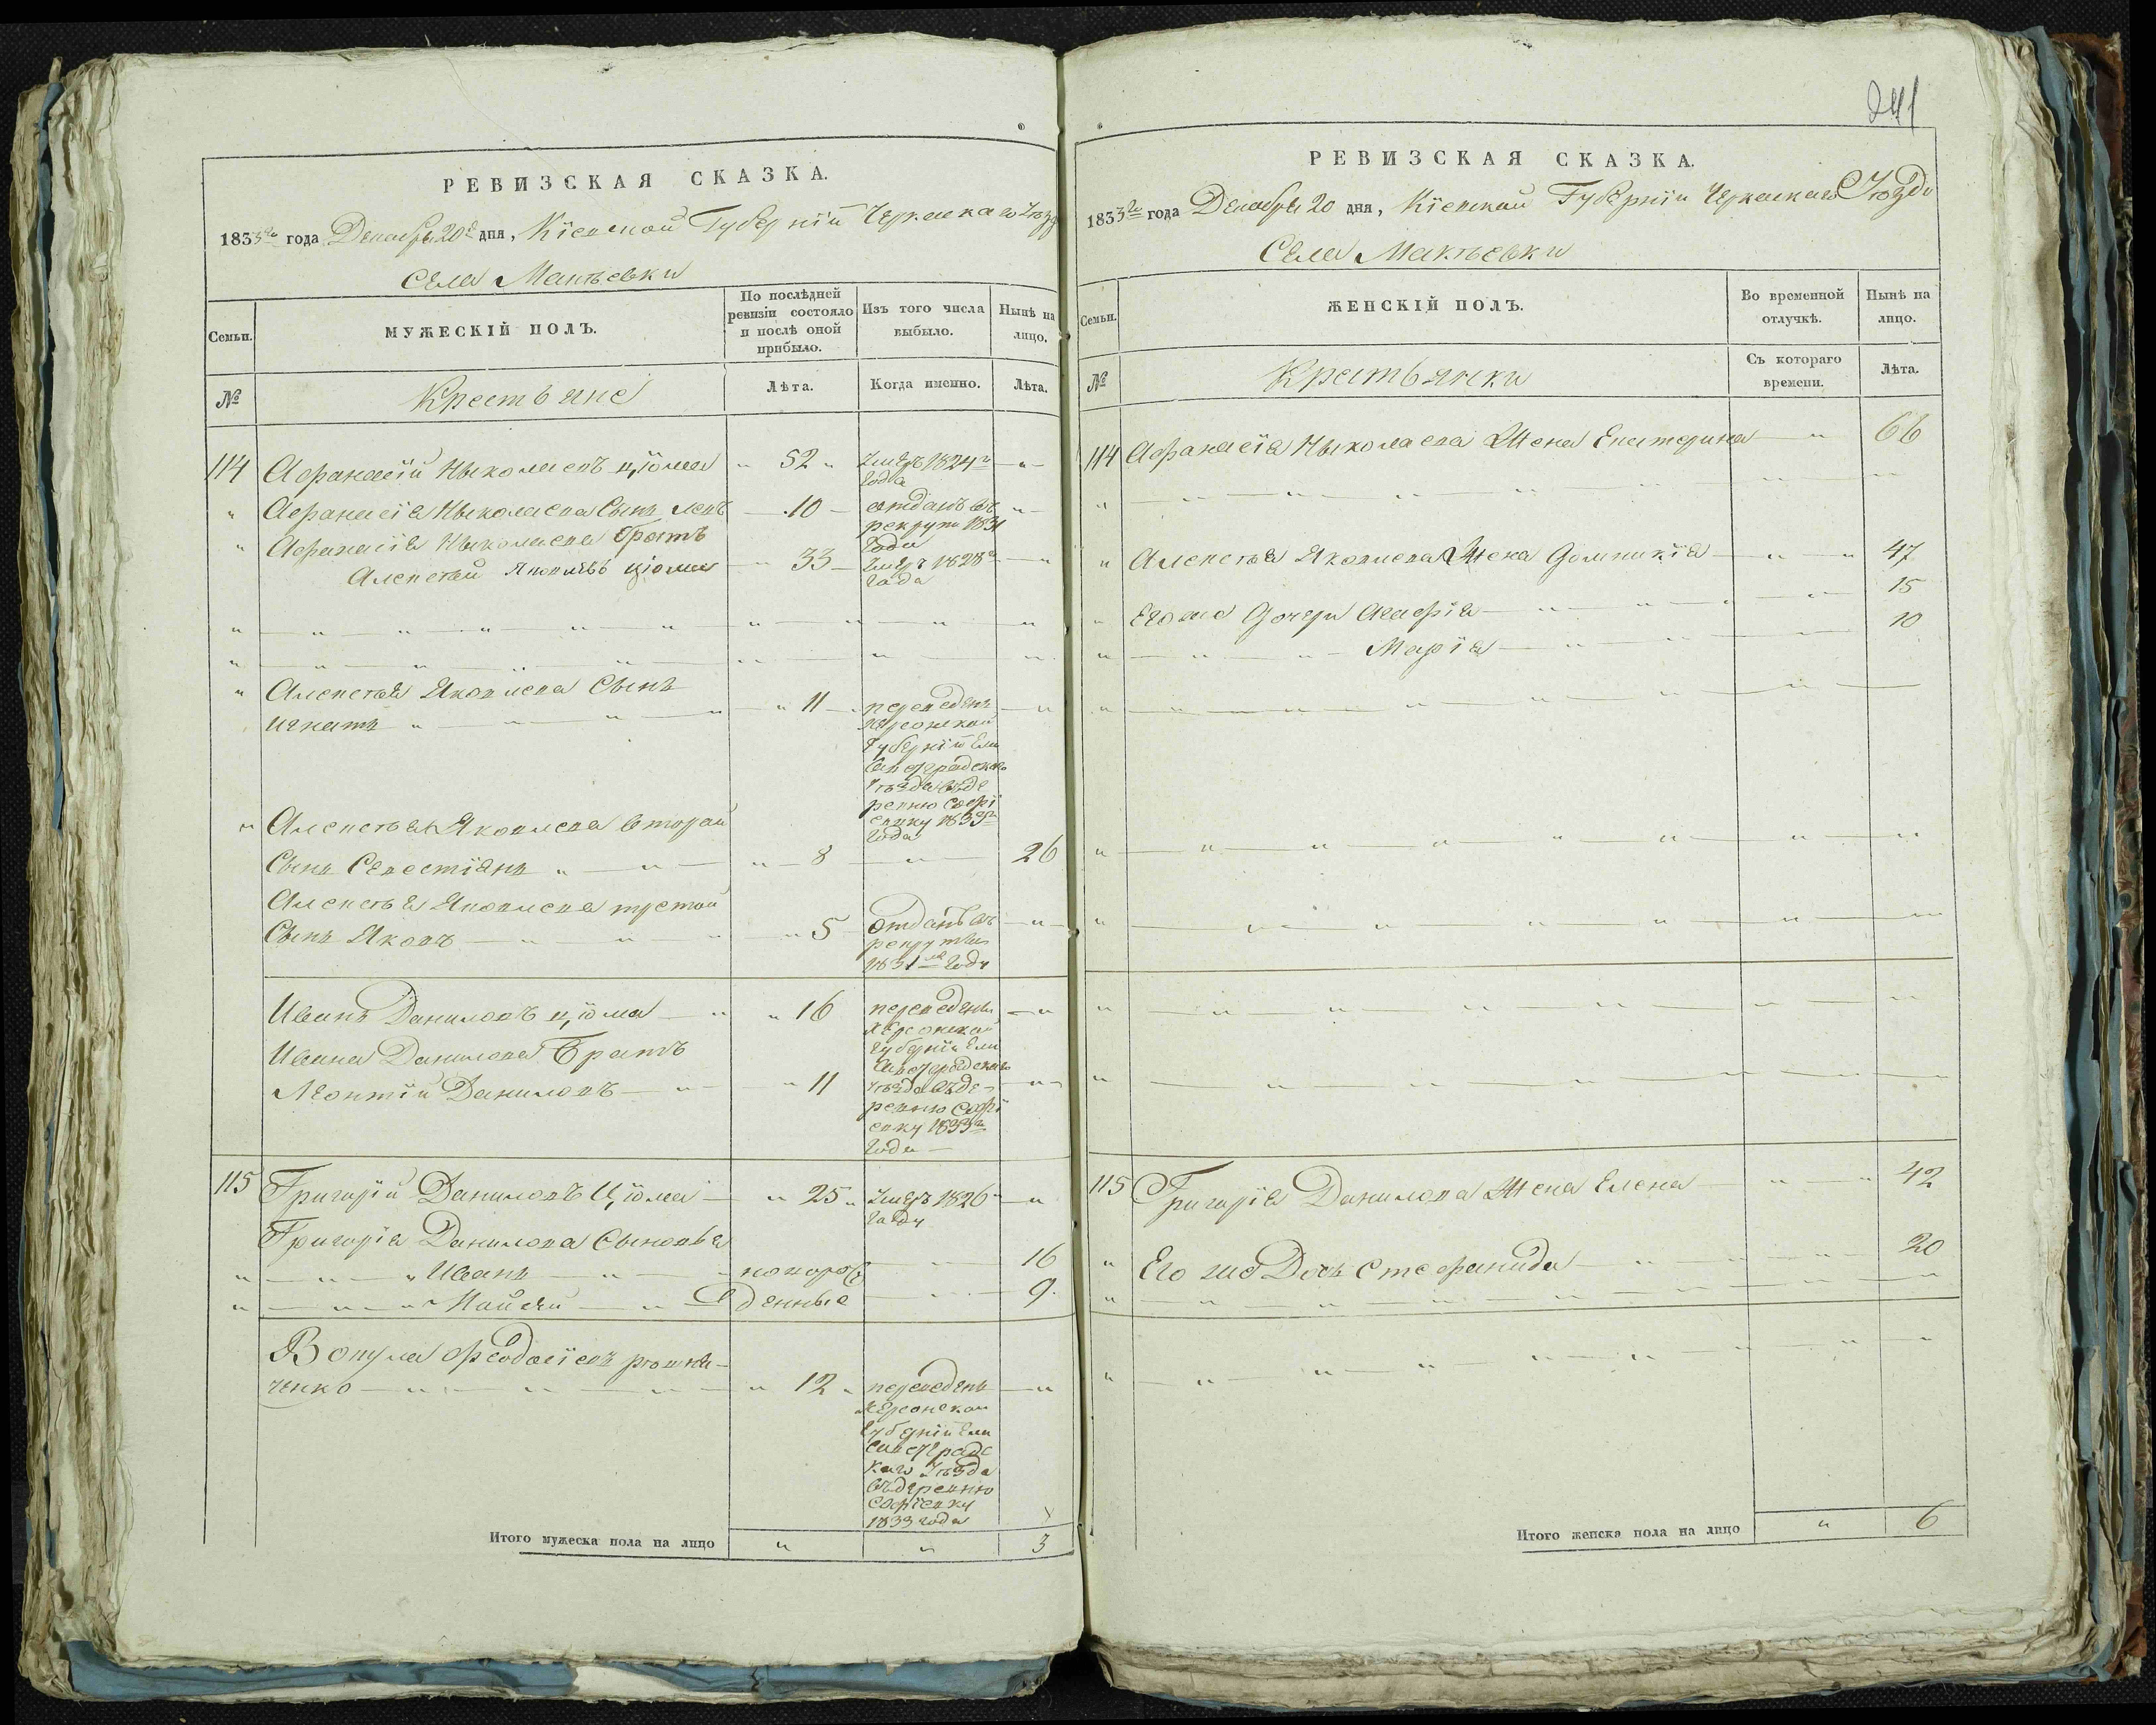 РЕВИЗСКАЯ СКАЗКА.
1833го года Декабря 20го дня, Кіевской Губерніи Черкаскаго
Села Макѣевки
Семьи.
МУЖЕСКІЙ ПОЛЪ.
По послѣдней
ревизіи состояло
и послѣ оной
прибыло.
Изъ того числа
выбыло.
Нынѣ на
лицо.
№
Крестьяне
Лѣта.
Когда именно.
Лѣта.
114 Афанасій Николаевъ Цюма 52 Умеръ 1824го
года
Афанасія Николаева Сынъ Левъ 10 отданъ въ
рекруты 1831
года
Афанасія Николаева братъ
Алексѣй Яковлевъ Цюма 33 Умеръ 1828го
года
Алексѣя Яковлева Сынъ
Игнатъ 11 переведенъ
Херсонской
Губерніи Ели
саветградскаго
Уѣзда въ де
ревню Софі
евку 1833го
года
Алексѣя Яковлева второй
Сынъ Севостіянъ 8 26
Алексѣя Яковлева третой
Сынъ Яковъ 5 отданъ въ
рекруты
1831го году
Иванъ Даниловъ Цюма 16 переведены
Херсонской
Губерніи Ели
саветградскаго
Уѣзда въ де
ревню Софі
евку 1833го
года
Ивана Данилова Братъ
Леонтій Даниловъ 11
115 Григорій Даниловъ Цюма 25 Умеръ 1826
году
Григорія Данилова Сыновья
Иванъ новорож 16
Мойсей денные 9.
Вотула Феодосіевъ
ченко 12 переведенъ
Херсонской
Губерніи Ели
саветградс
каго Уѣзда
въ деревню
Софіевку
1833 года
Итого мужеска пола на лицо 3
241
РЕВИЗСКАЯ СКАЗКА.
1833го года Декабря 20 дня, Кіевской Губерніи Черкаскаго Уѣзда
Села Макѣевки
Семьи.
ЖЕНСКІЙ ПОЛЪ.
Во временной
отлучкѣ.
Нынѣ на
лицо.
№
Крестьянки
Съ котораго
времени.
Лѣта.
114 Афанасія Николаева Жена Екатерина 66
Алексѣя Яковлева Жена Домникія 47
Его же Дочери Агафія 15
Марія 10
115 Григорія Данилова Жена Елена 42
Его же Дочь Стефанида 20
Итого женска пола на лицо 6